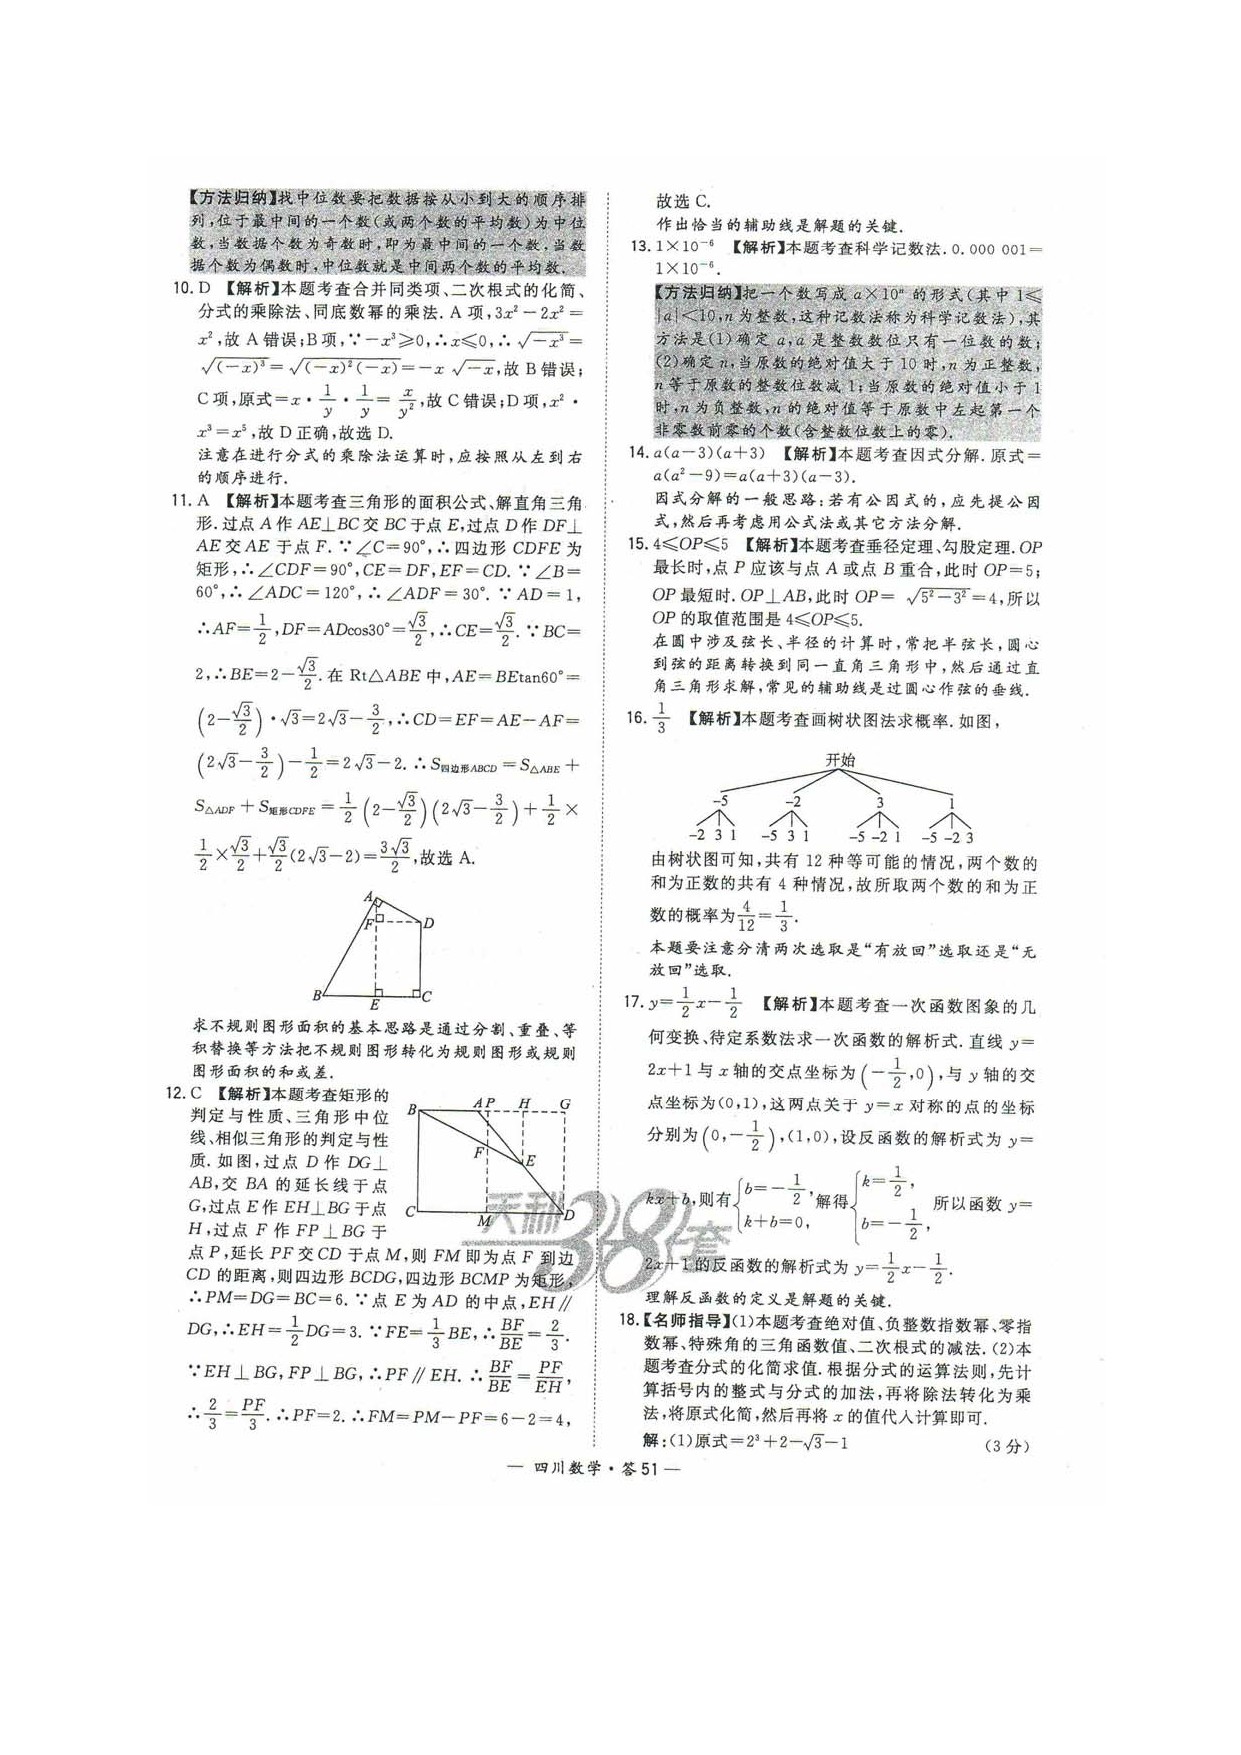 【方法归纳】找中位数要把数据按从小到大的顺序排
列,位于最中间的一个数(或两个数的平均数)为中位
数,当数据个数为奇数时,即为最中间的一个数,当数
据个数为偶数时,中位数就是中间两个数的平均数.
10. D 【解析】本题考查合并同类项、二次根式的化简、
分式的乘除法、同底数幂的乘法. A 项,3x²－2x²＝
x²,故 A 错误;B 项,∵－x³≥0,∴x≤0,∴√(－x³)＝
√(－x)³＝√(－x)²(－x)＝－x√－x,故 B 错误;
C 项,原式＝x·1/y·1/y＝x/y²,故 C 错误;D 项,x²·
x³＝x⁵,故 D 正确,故选 D.
注意在进行分式的乘除法运算时,应按照从左到右
的顺序进行.
11. A 【解析】本题考查三角形的面积公式、解直角三角
形.过点 A 作 AE⊥BC 交 BC 于点 E,过点 D 作 DF⊥
AE 交 AE 于点 F.∵∠C＝90°,∴四边形 CDFE 为
矩形,∴∠CDF＝90°,CE＝DF,EF＝CD.∵∠B＝
60°,∴∠ADC＝120°,∴∠ADF＝30°.∵AD＝1,
∴AF＝1/2,DF＝ADcos30°＝√3/2,∴CE＝√3/2.∵BC＝
2,∴BE＝2－√3/2.在 Rt△ABE 中,AE＝BEtan60°＝
(2－√3/2)·√3＝2√3－3/2,∴CD＝EF＝AE－AF＝
(2√3－3/2)－1/2＝2√3－2.∴S四边形ABCD＝S△ABE＋
S△ADF＋S矩形CDFE＝1/2(2－√3/2)(2√3－3/2)＋1/2×
1/2×√3/2＋√3/2(2√3－2)＝3√3/2,故选 A.
A
F
D
B
E
C
求不规则图形面积的基本思路是通过分割、重叠、等
积替换等方法把不规则图形转化为规则图形或规则
图形面积的和或差.
12. C 【解析】本题考查矩形的
判定与性质、三角形中位
线、相似三角形的判定与性
质.如图,过点 D 作 DG⊥
AB,交 BA 的延长线于点
G,过点 E 作 EH⊥BG 于点
H,过点 F 作 FP⊥BG 于
B A P H G
F E
C M D
点 P,延长 PF 交 CD 于点 M,则 FM 即为点 F 到边
CD 的距离,则四边形 BCDG,四边形 BCMP 为矩形,
∴PM＝DG＝BC＝6.∵点 E 为 AD 的中点,EH∥
DG,∴EH＝1/2DG＝3.∵FE＝1/3BE,∴BF/BE＝2/3.
∵EH⊥BG,FP⊥BG,∴PF∥EH.∴BF/BE＝PF/EH,
∴2/3＝PF/3.∴PF＝2.∴FM＝PM－PF＝6－2＝4,
故选 C.
作出恰当的辅助线是解题的关键.
13. 1×10⁻⁶ 【解析】本题考查科学记数法. 0.000 001＝
1×10⁻⁶.
【方法归纳】把一个数写成 a×10ⁿ 的形式(其中 1≤
|a|＜10,n 为整数,这种记数法称为科学记数法),其
方法是(1)确定 a,a 是整数数位只有一位数的数;
(2)确定 n,当原数的绝对值大于 10 时,n 为正整数,
n 等于原数的整数位数减 1;当原数的绝对值小于 1
时,n 为负整数,n 的绝对值等于原数中左起第一个
非零数前零的个数(含整数位数上的零).
14. a(a－3)(a＋3) 【解析】本题考查因式分解.原式＝
a(a²－9)＝a(a＋3)(a－3).
因式分解的一般思路:若有公因式的,应先提公因
式,然后再考虑用公式法或其它方法分解.
15. 4≤OP≤5 【解析】本题考查垂径定理、勾股定理.OP
最长时,点 P 应该与点 A 或点 B 重合,此时 OP＝5;
OP 最短时.OP⊥AB,此时 OP＝√(5²－3²)＝4,所以
OP 的取值范围是 4≤OP≤5.
在圆中涉及弦长、半径的计算时,常把半弦长,圆心
到弦的距离转换到同一直角三角形中,然后通过直
角三角形求解,常见的辅助线是过圆心作弦的垂线.
16. 1/3 【解析】本题考查画树状图法求概率.如图,
开始
-5 -2 3 1
-2 3 1 -5 3 1 -5 -2 1 -5 -2 3
由树状图可知,共有 12 种等可能的情况,两个数的
和为正数的共有 4 种情况,故所取两个数的和为正
数的概率为4/12＝1/3.
本题要注意分清两次选取是“有放回”选取还是“无
放回”选取.
17. y＝1/2x－1/2 【解析】本题考查一次函数图象的几
何变换、待定系数法求一次函数的解析式.直线 y＝
2x＋1 与 x 轴的交点坐标为(－1/2,0),与 y 轴的交
点坐标为(0,1),这两点关于 y＝x 对称的点的坐标
分别为(0,－1/2),(1,0),设反函数的解析式为 y＝
kx＋b,则有{b＝－1/2, k＋b＝0, 解得{k＝1/2, b＝－1/2, 所以函数 y＝
2x＋1 的反函数的解析式为 y＝1/2x－1/2.
理解反函数的定义是解题的关键.
18.【名师指导】(1)本题考查绝对值、负整数指数幂、零指
数幂、特殊角的三角函数值、二次根式的减法.(2)本
题考查分式的化简求值.根据分式的运算法则,先计
算括号内的整式与分式的加法,再将除法转化为乘
法,将原式化简,然后再将 x 的值代入计算即可.
解:(1)原式＝2³＋2－√3－1 (3 分)
天利38套
— 四川数学·答 51 —